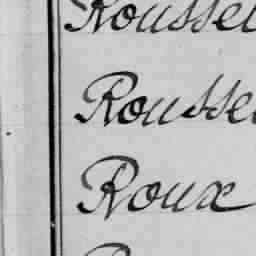 Rousse
Rousse
Roux